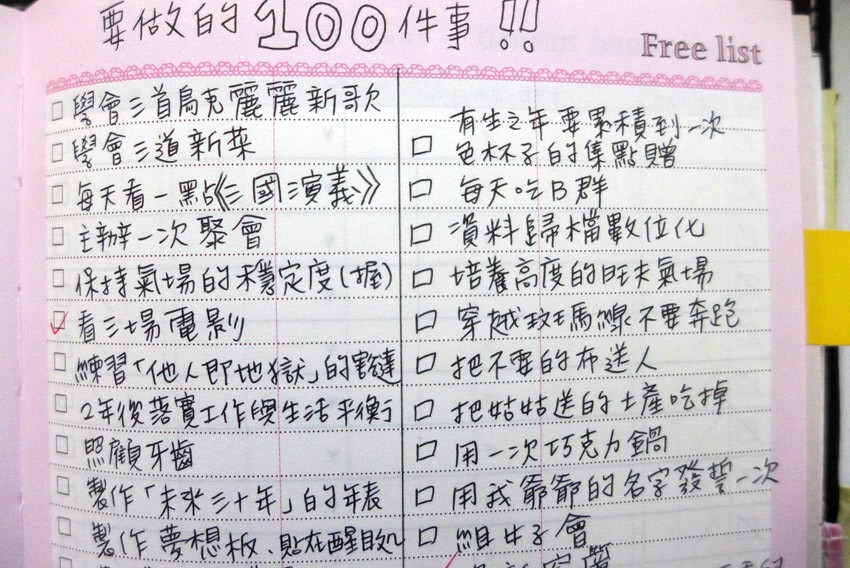 要做的100件事!!
Free list
學會三首烏克麗麗新歌
學會三道新菜
每天看一點《三國演義》
主辦一次聚會
保持氣場的穩定度(握)
看三場電影
練習「他人即地獄」的豁達
2年後落實工作與生活平衡
照顧牙齒
製作「未來三十年」的年表
製作夢想板、貼在醒目處
有生之年要累積到一次
色杯子的集點贈
每天吃B群
資料歸檔數位化
培養高度的旺夫氣場
穿越斑馬線不要奔跑
把不要的布送人
把姑姑送的土產吃掉
用一次巧克力鍋
用我爺爺的名字發誓一次
組姊子會